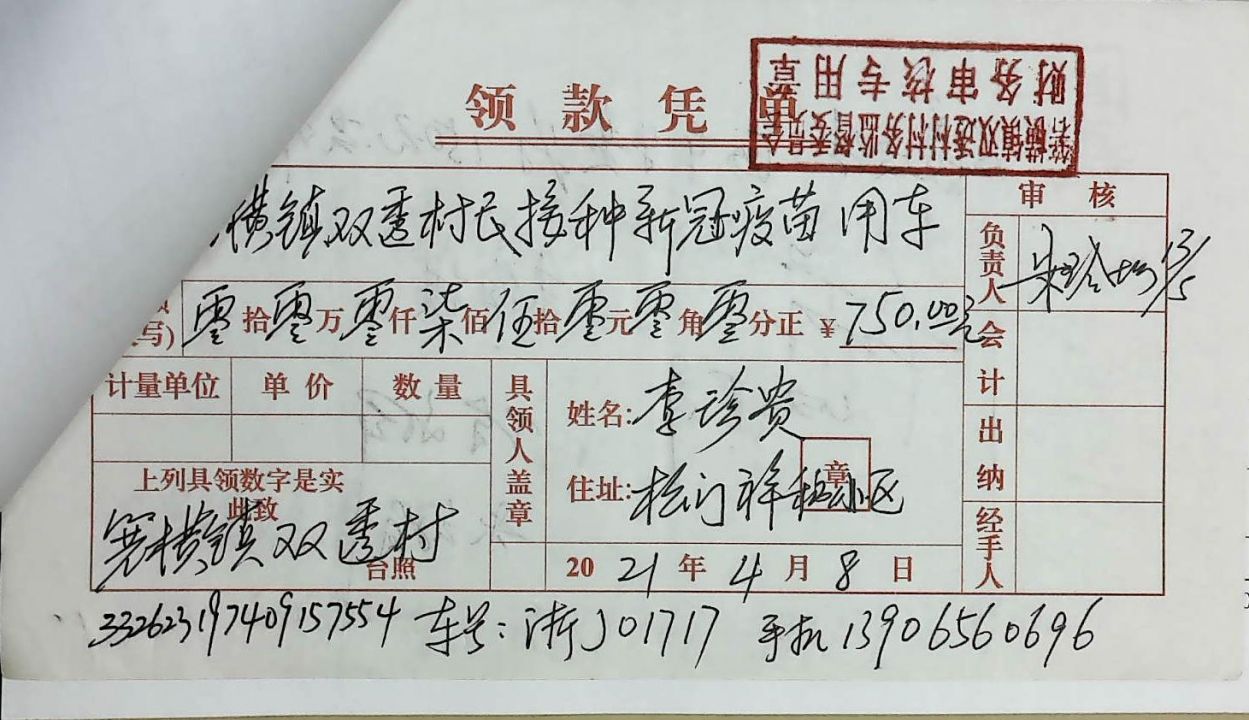 领款凭单
财务审核专用章
箬横镇双透村村务监督委员会
横镇双透村民接种新冠疫苗用车
审核
负责人 13/5
写) 零拾零万零仟柒佰伍拾零元零角零分正 ¥ 750.00元
会计
计量单位 单价 数量
具领人盖章
姓名: 李珍贵
出纳
住址: 松门祥和小区
章
上列具领数字是实
此致
箬横镇双透村
台照
2021年4月8日
经手人
332623197409157554 车号: 浙J01717 手机 13906560696